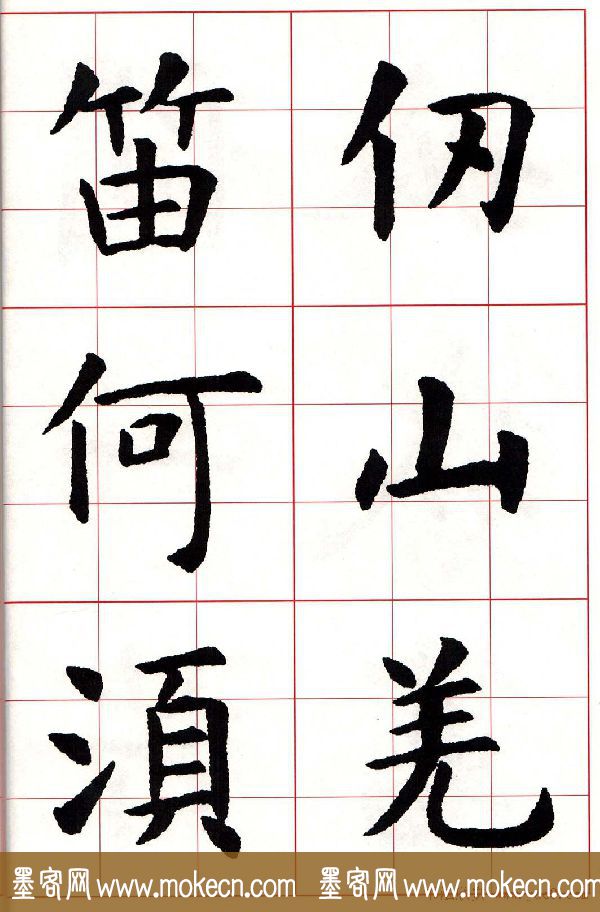 仞山羌
笛何湏
墨客网 www.mokecn.com 墨客网 www.mokecn.com